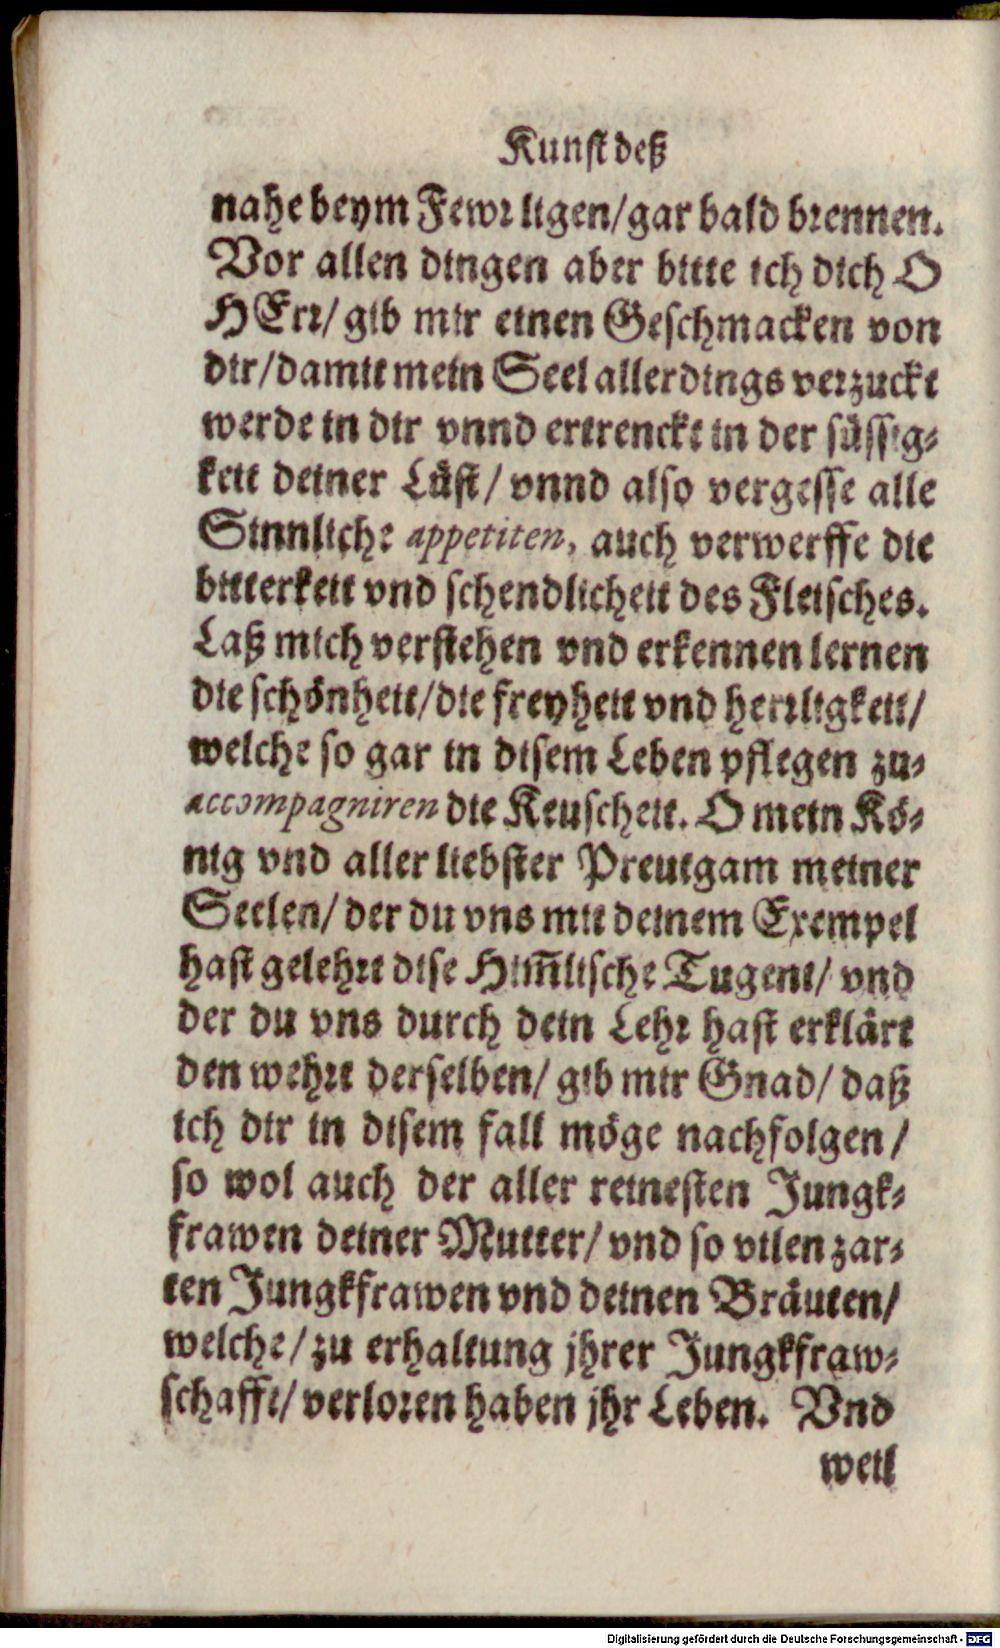 Kunst deß
nahe beym Fewr ligen/gar bald brennen.
Vor allen dingen aber bitte ich dich O
HErr/ gib mir einen Geschmacken von
dir/damit mein Seel allerdings verzuckt
werde in dir vnnd ertrenckt in der süssig-
keit deiner Lüst/ vnnd also vergesse alle
Sinnliche appetiten, auch verwerffe die
bitterkeit vnd schendlicheit des Fleisches.
Laß mich verstehen vnd erkennen lernen
die schönheit/die freyheit vnd herrligkeit/
welche so gar in disem Leben pflegen zu-
accompagniren die Keuscheit. O mein Kö-
nig vnd aller liebster Preutgam meiner
Seelen/ der du vns mit deinem Exempel
hast gelehrt dise Him̃lische Tugent/ vnd
der du vns durch dein Lehr hast erklärt
den wehrt derselben/ gib mir Gnad/ daß
ich dir in disem fall möge nachfolgen/
so wol auch der aller reinesten Jungk-
frawen deiner Mutter/ vnd so vilen zar-
ten Jungkfrawen vnd deinen Bräuten/
welche/ zu erhaltung jhrer Jungkfraw-
schafft/ verloren haben jhr Leben. Vnd
weil
Digitalisierung gefördert durch die Deutsche Forschungsgemeinschaft - DFG